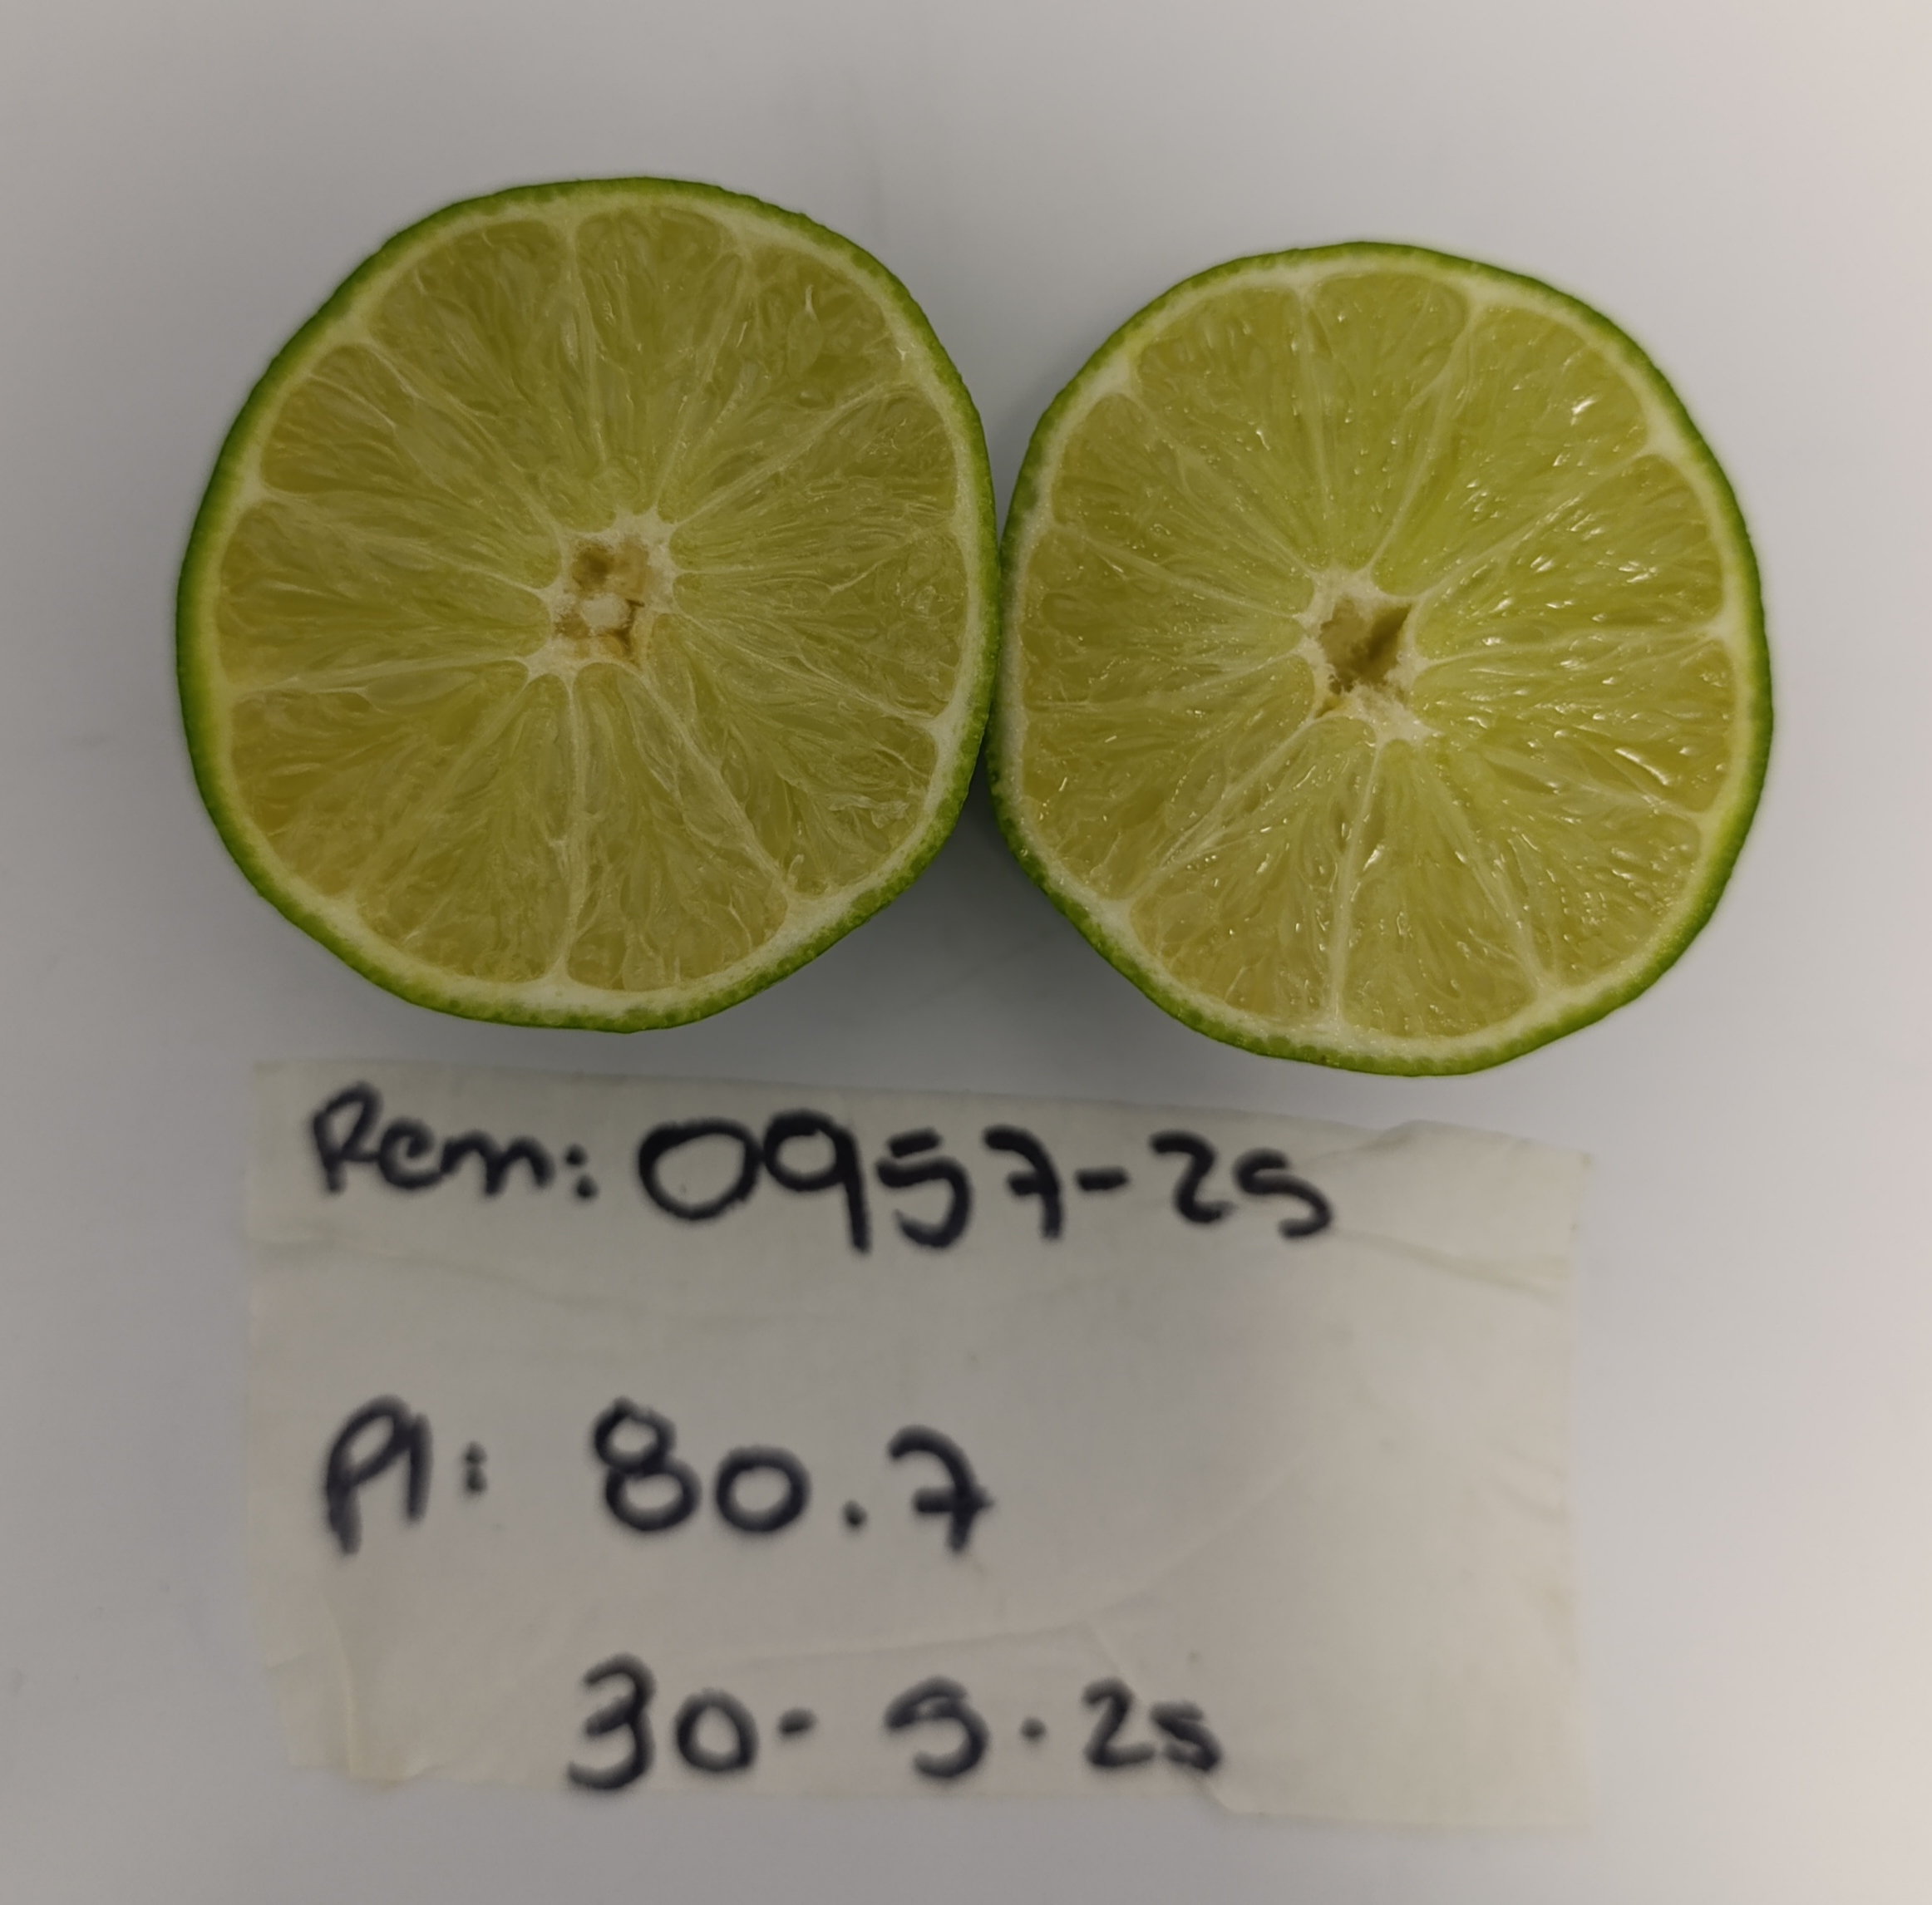 Rem: 0957-25
Pl: 80.7
30-5.25